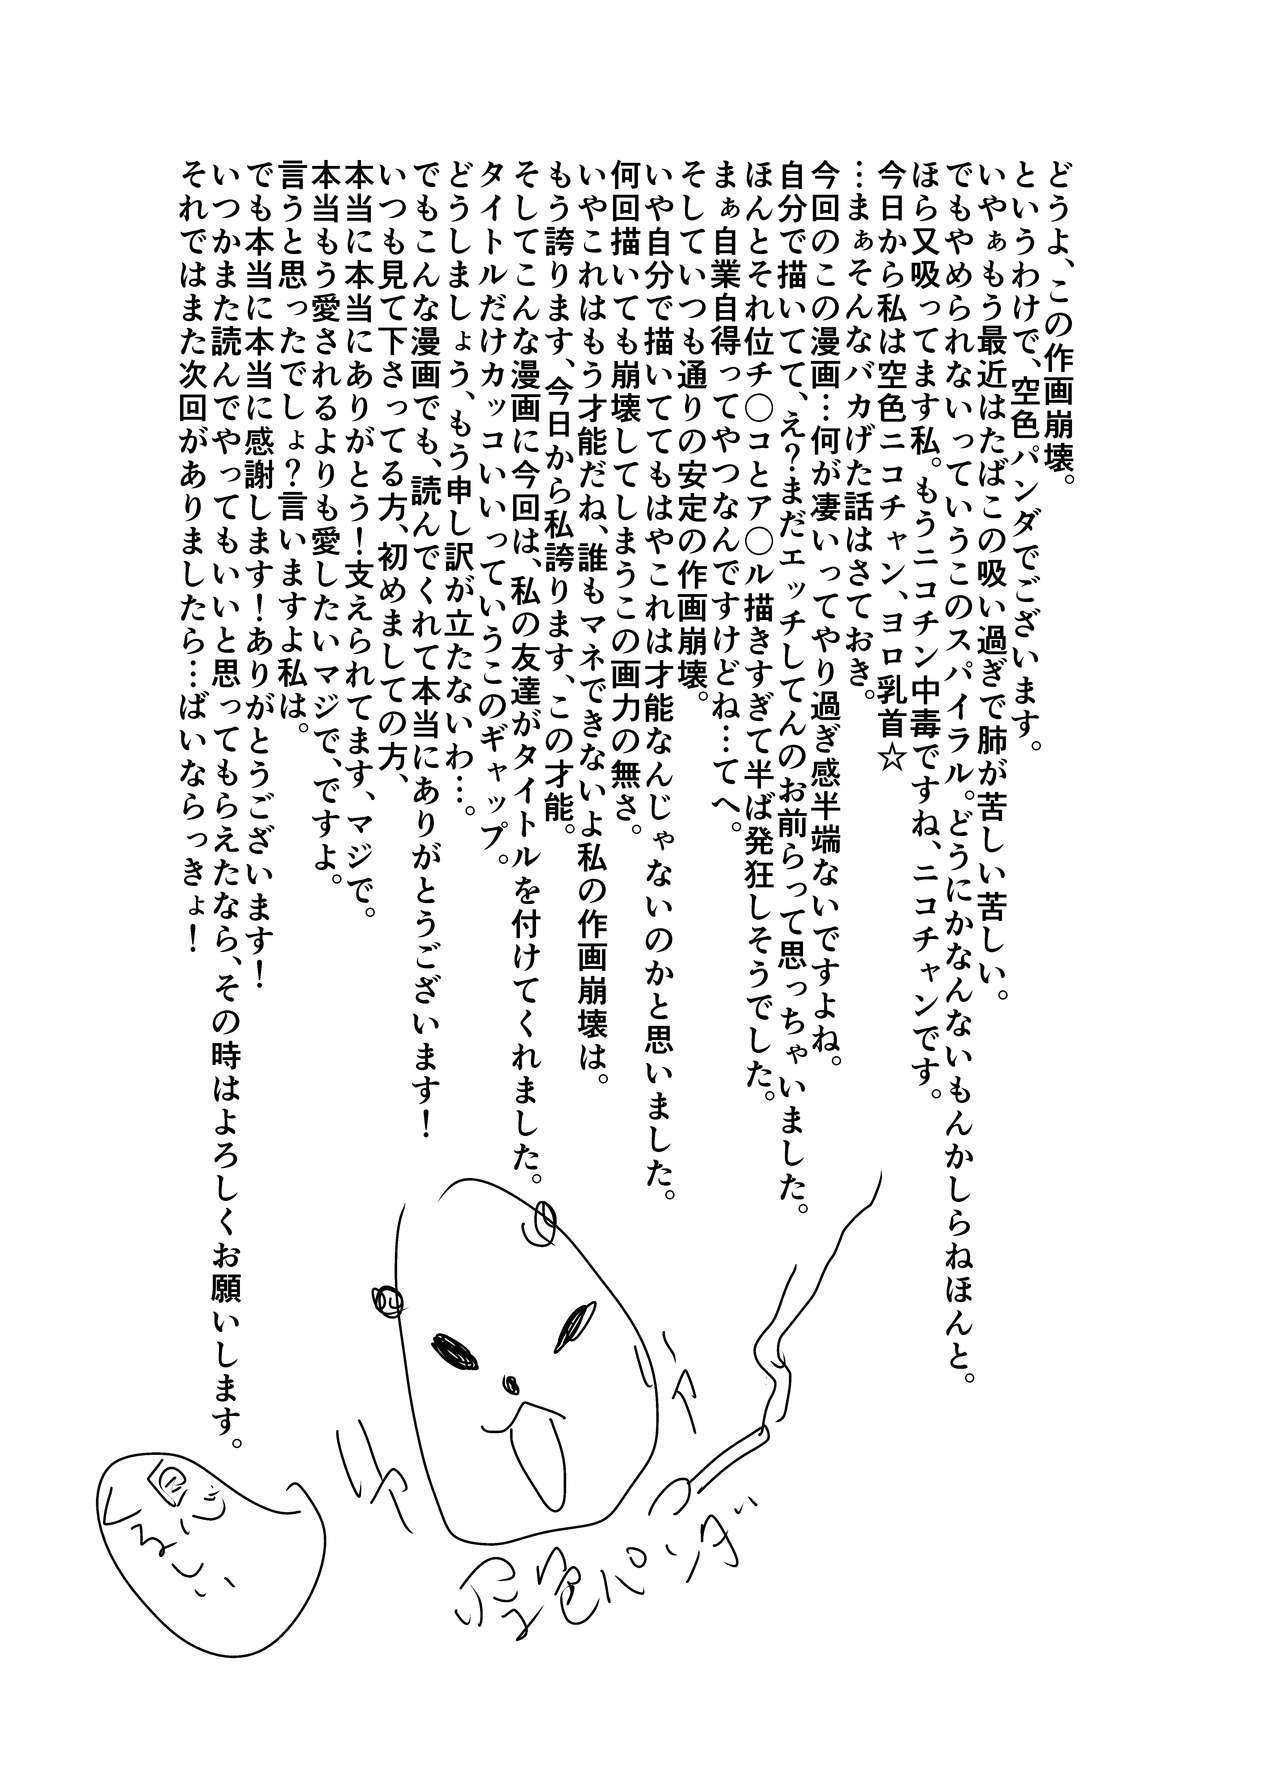 どうよ、この作画崩壊。
というわけで、空色パンダでございます。
いやぁもう最近はたばこの吸い過ぎで肺が苦しい苦しい。
でもやめられないっていうこのスパイラル。どうにかなんないもんかしらねほんと。
ほら又吸ってます私。もうニコチン中毒ですね、ニコチャンです。
今日から私は空色ニコチャン、ヨロ乳首☆
…まぁそんなバカげた話はさておき。
今回のこの漫画…何が凄いってやり過ぎ感半端ないですよね。
自分で描いてて、え？まだエッチしてんのお前らって思っちゃいました。
ほんとそれ位チ〇コとア〇ル描きすぎて半ば発狂しそうでした。
まぁ自業自得ってやつなんですけどね…てへ。
そしていつも通りの安定の作画崩壊。
いや自分で描いててもはやこれは才能なんじゃないのかと思いました。
何回描いても崩壊してしまうこの画力の無さ。
いやこれはもう才能だね、誰もマネできないよ私の作画崩壊は。
もう誇ります、今日から私誇ります、この才能。
そしてこんな漫画に今回は、私の友達がタイトルを付けてくれました。
タイトルだけカッコいいっていうこのギャップ。
どうしましょう、もう申し訳が立たないわ…。
でもこんな漫画でも、読んでくれて本当にありがとうございます！
いつも見て下さってる方、初めましての方、
本当に本当にありがとう！支えられてます、マジで。
本当もう愛されるよりも愛したいマジで、ですよ。
言うと思ったでしょ？言いますよ私は。
でも本当に本当に感謝します！ありがとうございます！
いつかまた読んでやってもいいと思ってもらえたなら、その時はよろしくお願いします。
それではまた次回がありましたら…ばいならっきょ！
空色パンダ
息が
くるしい